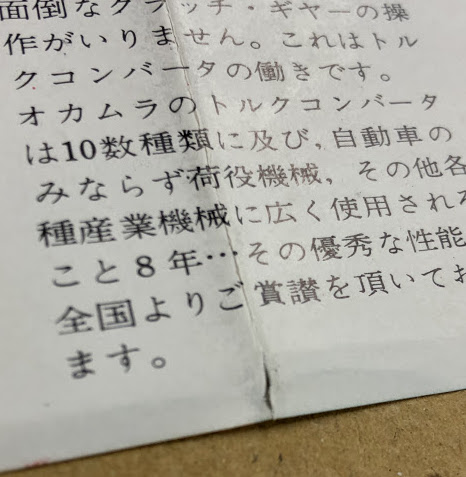 面倒なクラッチ・ギヤーの操
作がいりません。これはトル
クコンバータの働きです。
オカムラのトルクコンバータ
は10数種類に及び,自動車の
みならず荷役機械,その他各
種産業機械に広く使用される
こと8年…その優秀な性能
全国よりご賞讃を頂いてお
ます。